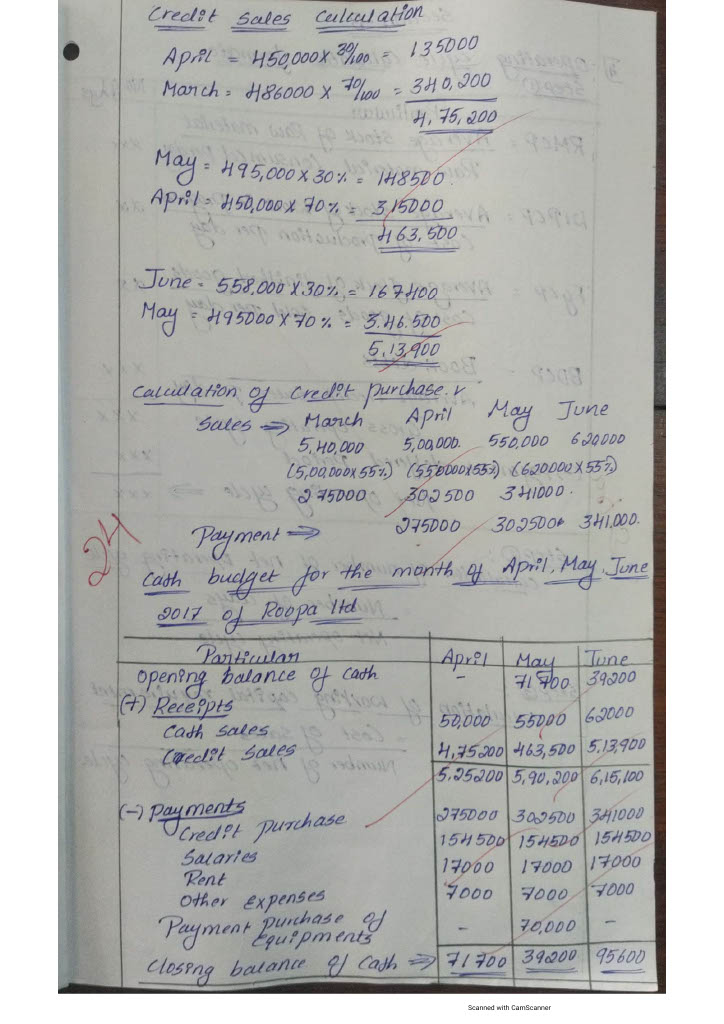 Credit Sales Calculation
April = 450,000 x 30/100 = 135000
March = 486000 x 70/100 = 340,200
4,75,200
May = 495,000 x 30% = 148500.
April = 450,000 x 70% = 315000
463,500
June = 558,000 x 30% = 167400
May = 495000 x 70% = 3.46.500
5,13,900
Calculation of Credit purchase
Sales ⇒ March April May June
5,40,000 5,00,000. 550,000 620000
(5,00,000x55%) (550000x55%) (620000x55%)
275000 302500 341000.
Payment ⇒ 275000 302500 341.000.
24
Cash budget for the month of April, May, June
2017 of Roopa ltd
Particular April May June
Opening balance of cash - 71700 39200
(+) Receipts
Cash sales 50,000 55000 62000
Credit Sales 4,75200 463,500 5,13,900
5,25200 5,90,200 6,15,100
(-) Payments
Credit purchase 275000 302500 341000
Salaries 154500 154500 154500
Rent 17000 17000 17000
Other Expenses 7000 7000 7000
Payment purchase of Equipments - 70,000 -
Closing balance of cash ⇒ 71700 39200 95600
Scanned with CamScanner